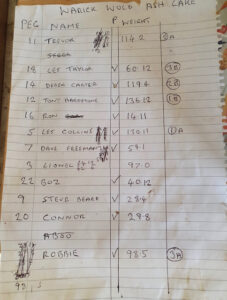 WARICK WOLD ASH LAKE
PEG NAME P WEIGHT
11 TREVOR 114.2 2A
18 LEE TAYLOR ✓ 60.12 3B
14 DEREK CARTER ✓ 119.4 2B
12 TONY ✓ 136.12 1B
16 RON ✓ 14.11
5 LES COLLINS ✓ 150.11 1A
7 DAVE FREEMAN ✓ 59.1
3 LIONEL ✓ 97.0
22 BOZ ✓ 40.12
9 STEVE BEARD ✓ 28.4
20 CONNOR ✓ 29.8
ABOO
ROBBIE ✓ 98.5 3A